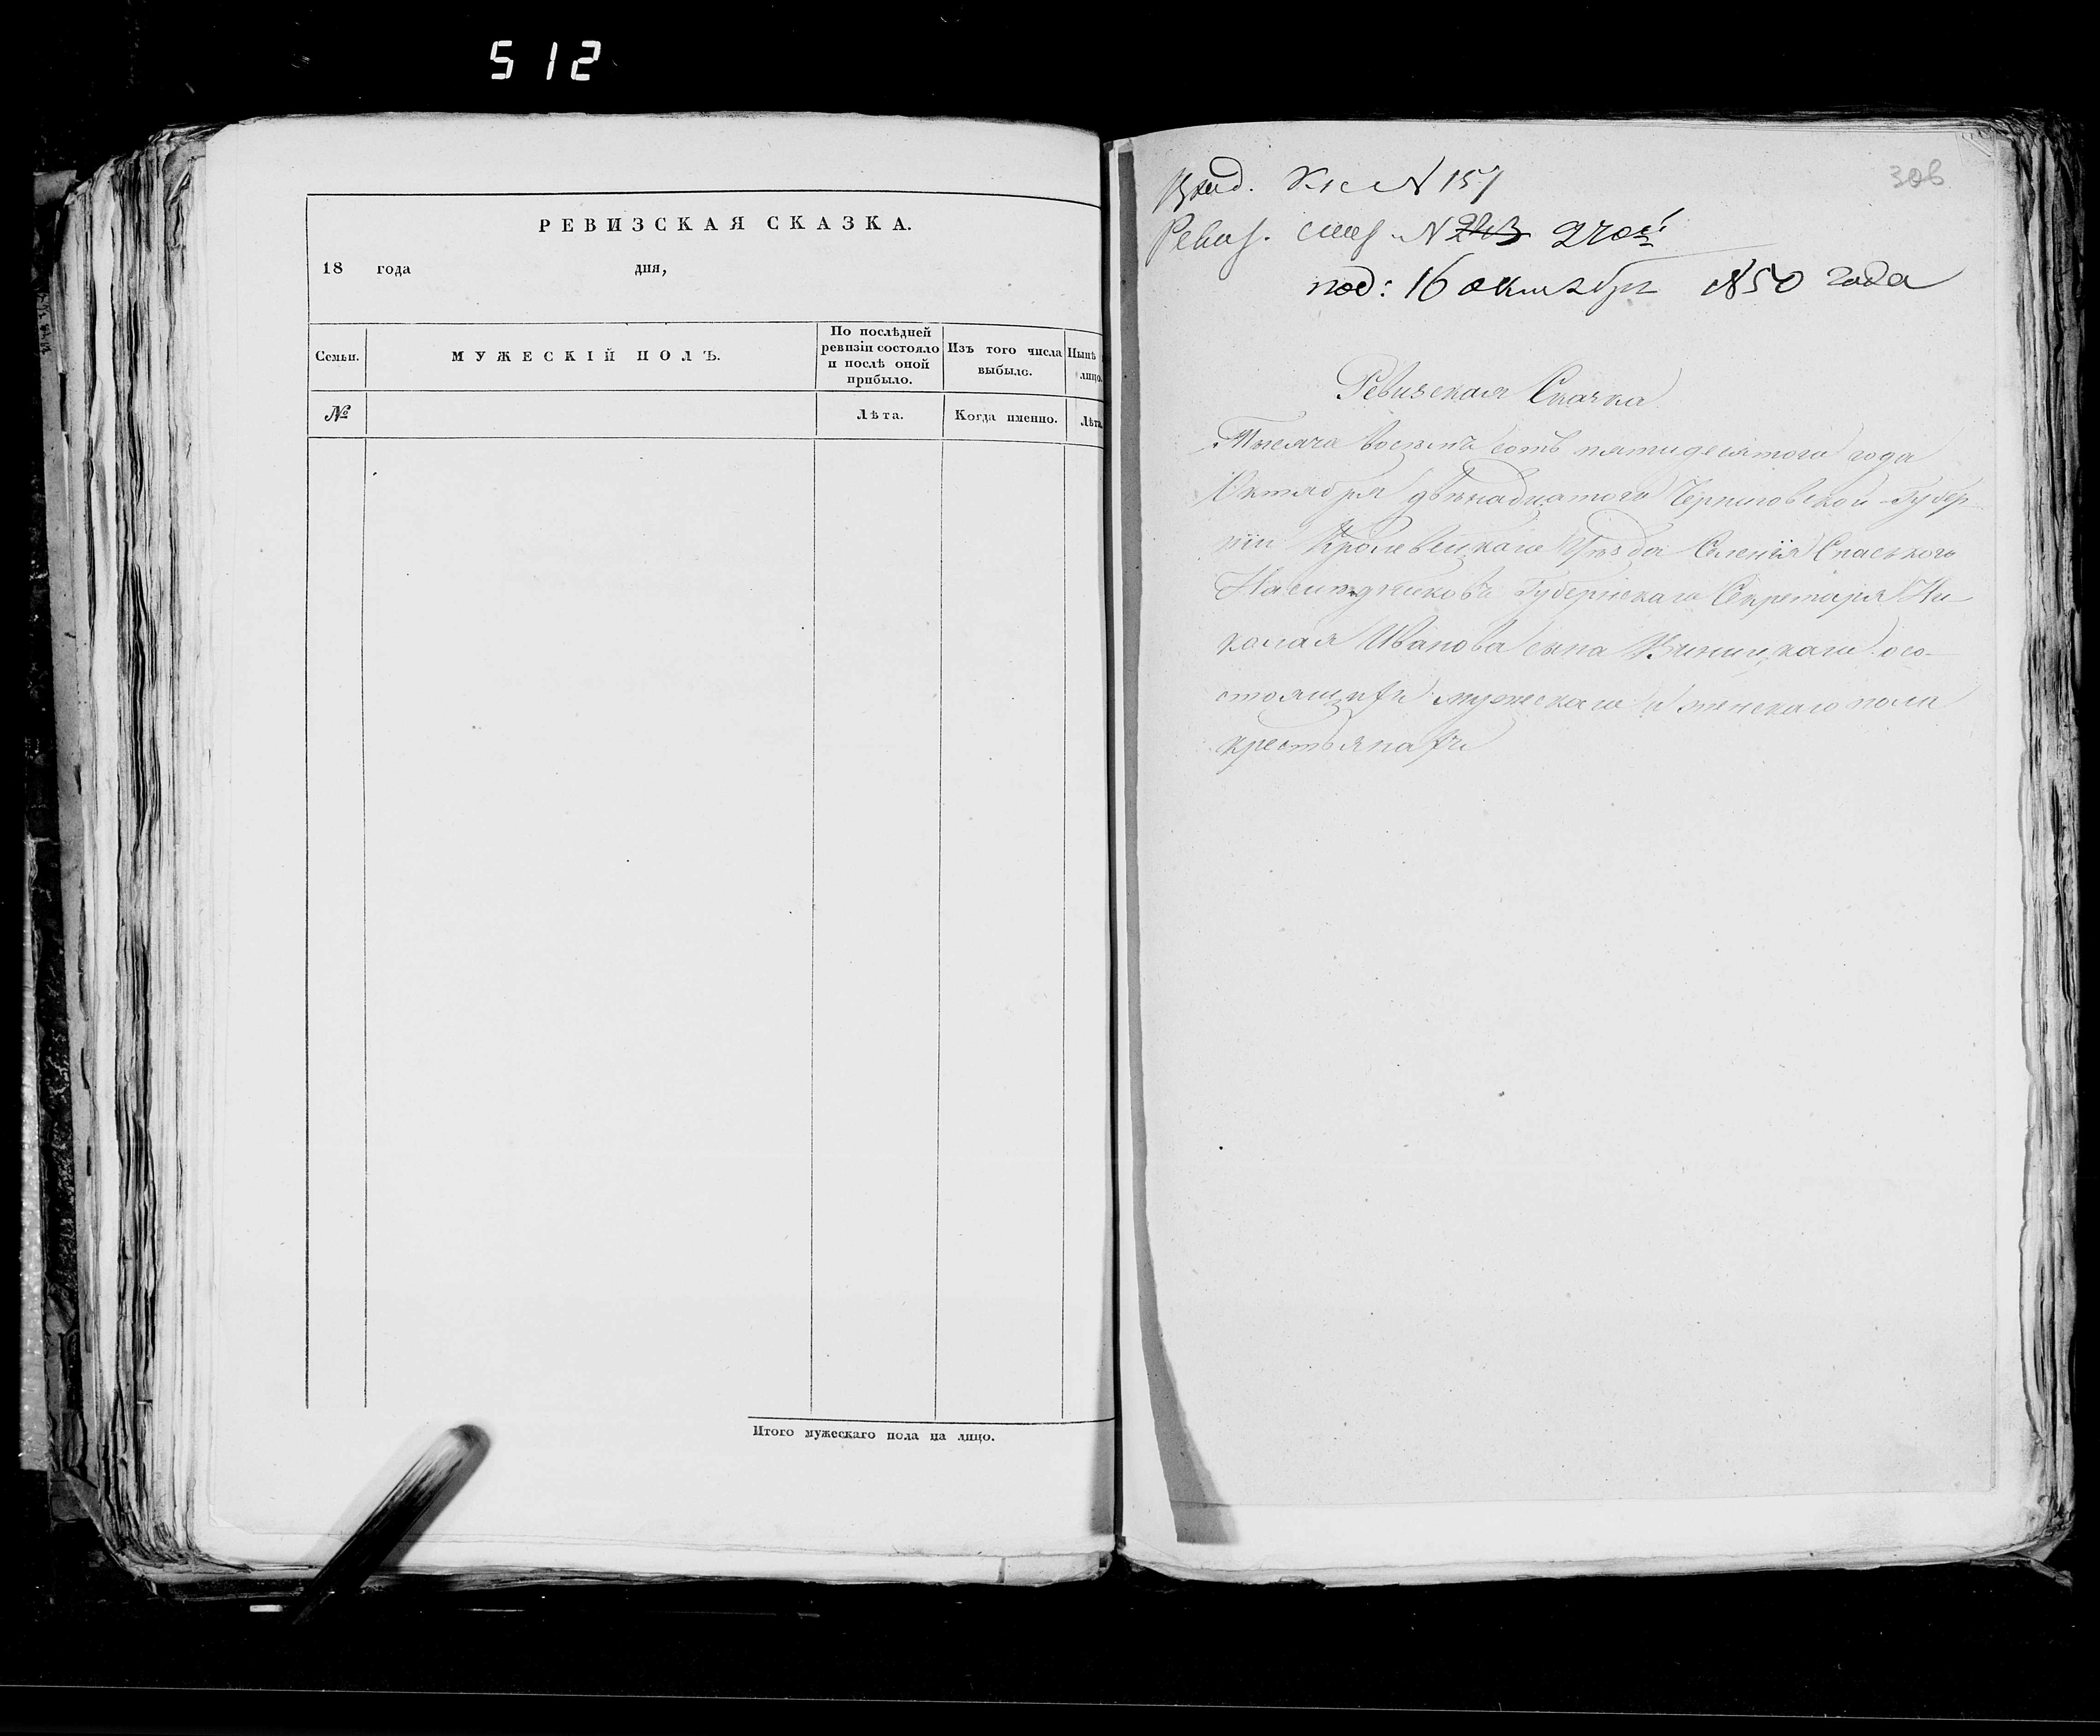 512
РЕВИЗСКАЯ СКАЗКА.
18 года дня,
Семьи.
МУЖЕСКІЙ ПОЛЪ.
По послѣдней
ревизіи состояло
и послѣ оной
прибыло.
Изъ того числа
выбыло.
Нынѣ
лицо.
№
Лѣта.
Когда именно.
Лѣта
Итого мужескаго пола на лицо.
306
N 157
Ревиз. N 243
под: 16 октября 1850 года
Ревизская Сказка
Тысяча восемь сотъ пятидесятого года
Октября двенадцатого Черниговской Губер
ніи Кролевецкаго Уѣзда Селенія Спаского
Наследниковъ Губернскаго Секретаря Ни-
колая Иванова сына Виницкаго о со-
стоящихъ мужескаго и женскаго пола
крестьянахъ